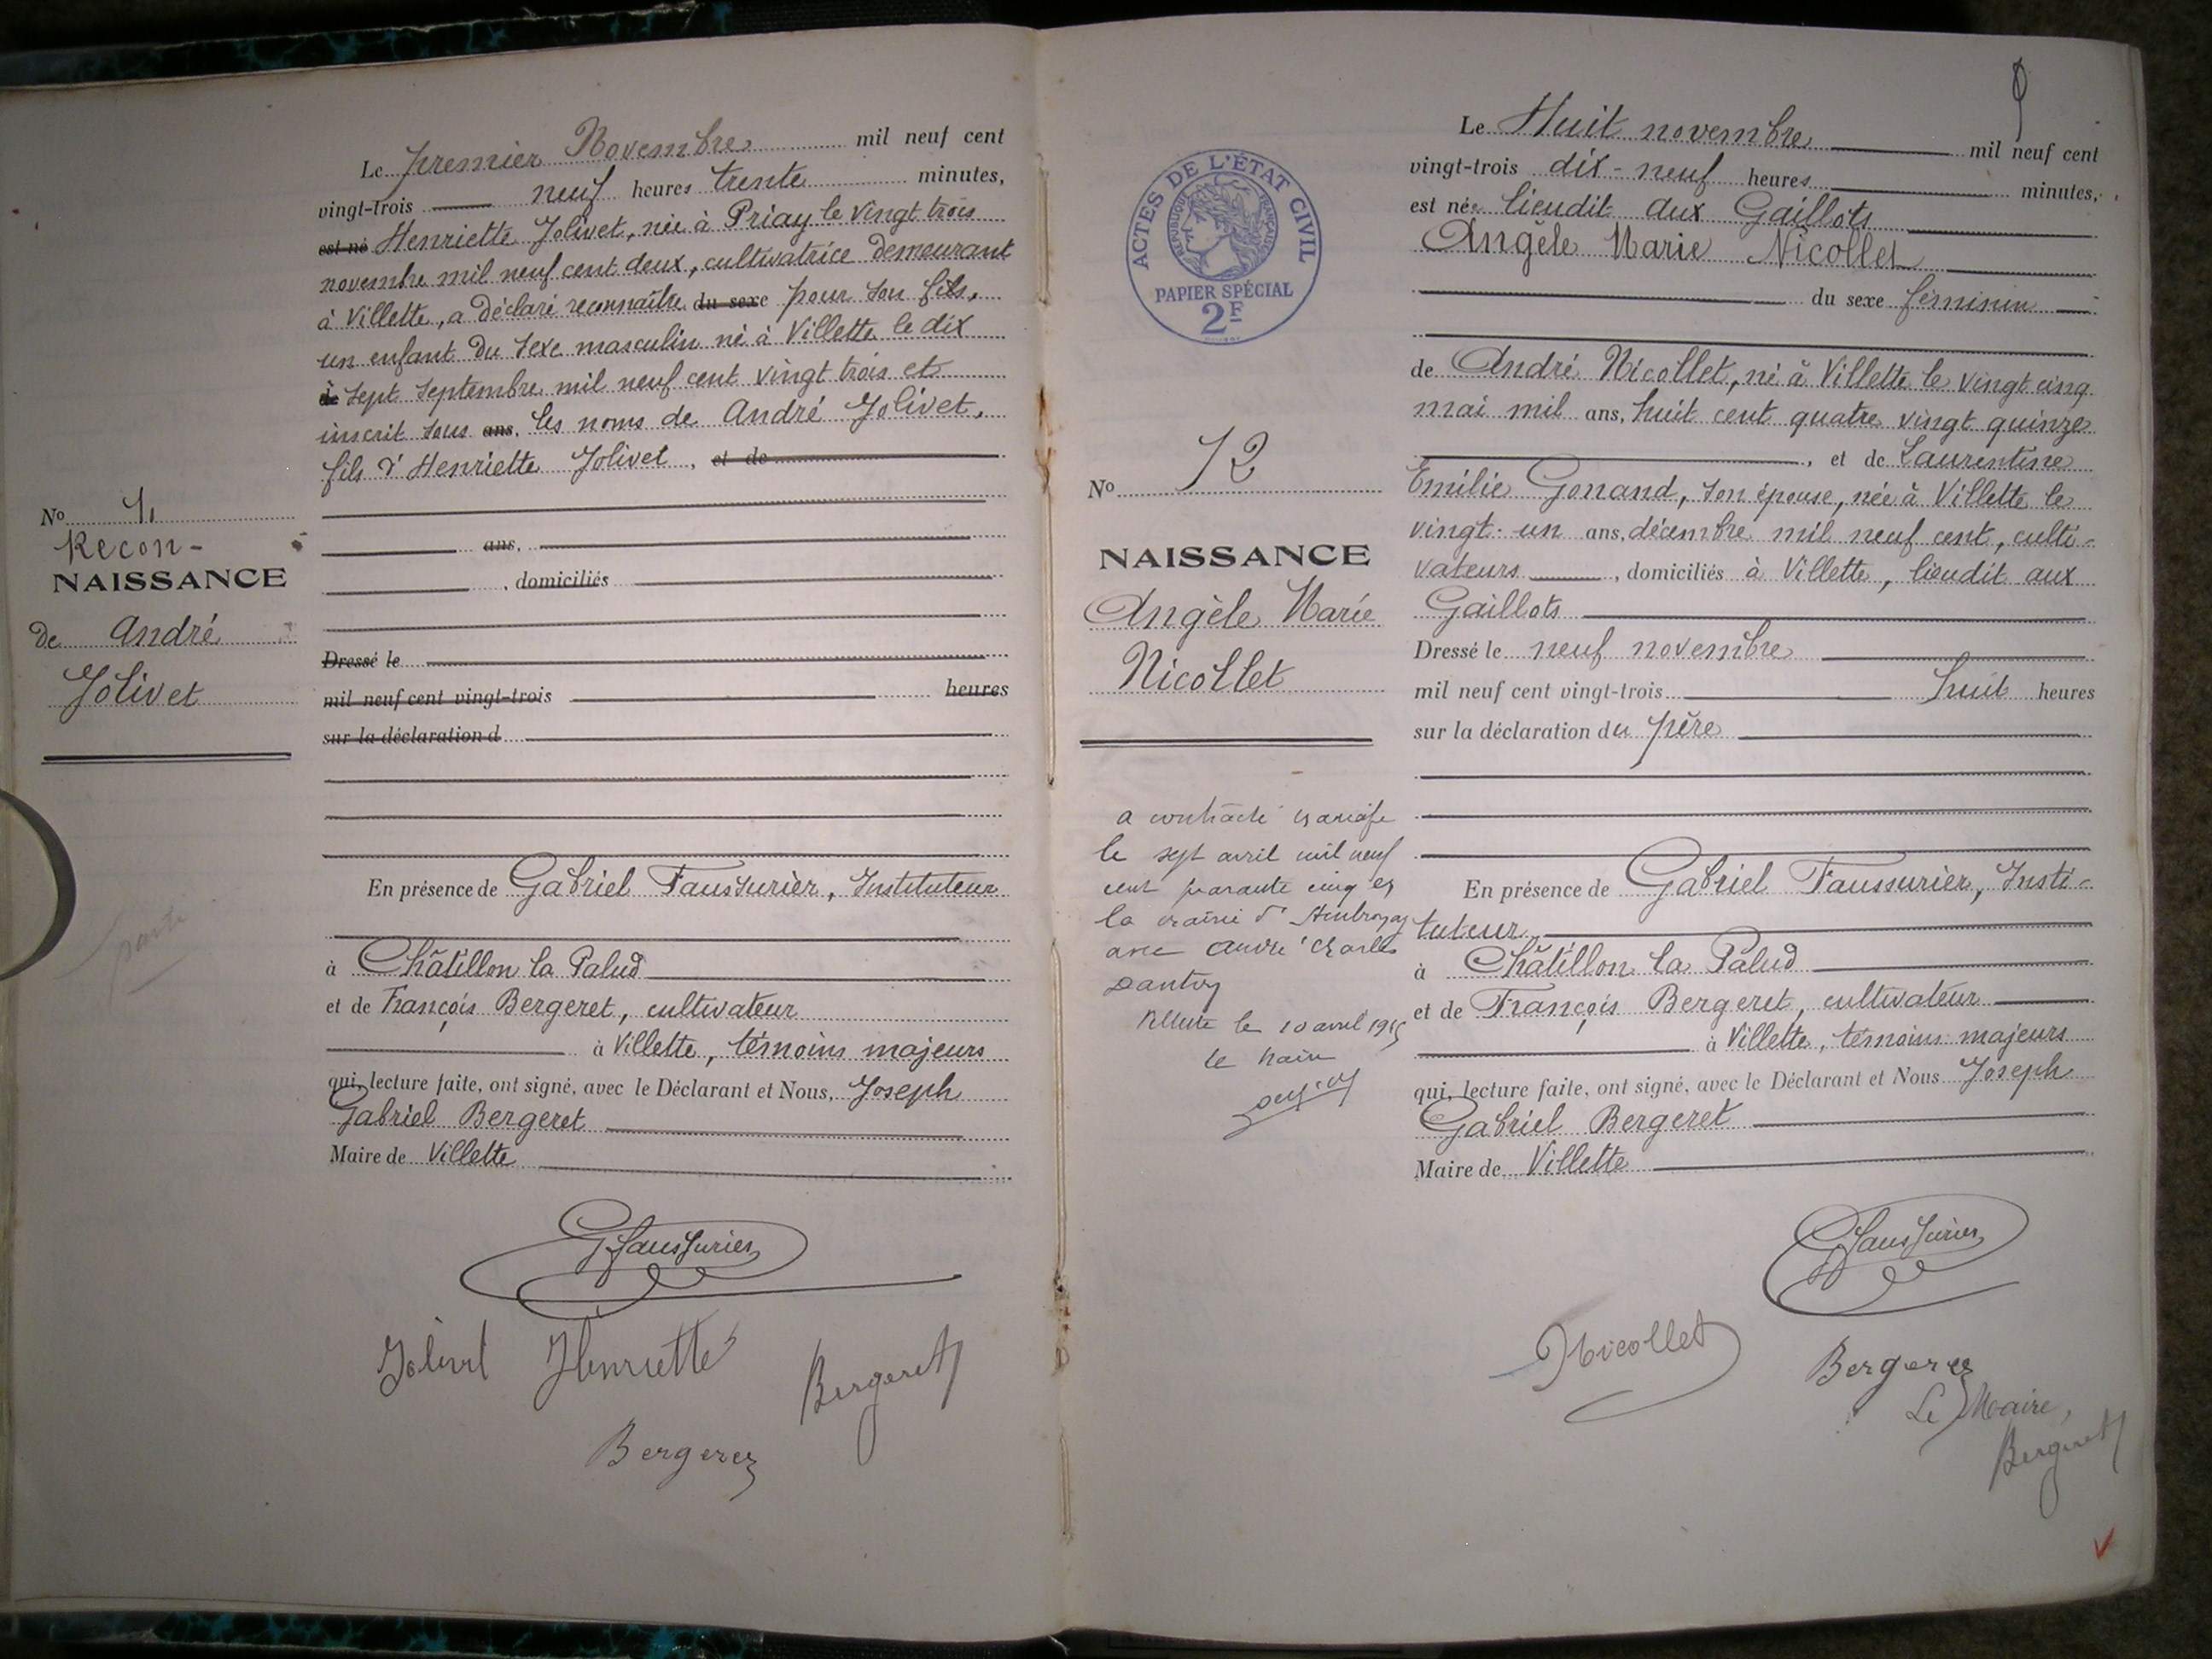 No 11
Recon-
NAISSANCE
de André
Jolivet
Le premier Novembre mil neuf cent
vingt-trois neuf heures trente minutes,
est né Henriette Jolivet, née à Priay le vingt trois
novembre mil neuf cent deux, cultivatrice demeurant
à Villette, a déclaré reconnaître du sexe pour son fils,
un enfant du sexe masculin né à Villette le dix
de sept septembre mil neuf cent vingt trois et
inscrit sous ans, les noms de André Jolivet,
fils d'Henriette Jolivet, et de
ans,
, domiciliés
Dressé le
mil neuf cent vingt-trois heures
sur la déclaration d
En présence de Gabriel Faussurier, Instituteur
à Châtillon la Palud
et de François Bergeret, cultivateur
à Villette, témoins majeurs
qui, lecture faite, ont signé, avec le Déclarant et Nous, Joseph
Gabriel Bergeret
Maire de Villette
G Faussurier
Jolivet Henriette Bergeret
Bergeret
ACTES DE L'ÉTAT CIVIL
RÉPUBLIQUE FRANÇAISE
PAPIER SPÉCIAL
2F
No 12
NAISSANCE
Angèle Marie
Nicollet
a contracté mariage
le sept avril mil neuf
cent quarante cinq en
la mairie d'Ambronay
avec André Charles
Dantoy
Villette le 10 avril 1945
le Maire
Le Huit novembre mil neuf cent
vingt-trois dix-neuf heures minutes,
est née lieudit aux Gaillots
Angèle Marie Nicollet
du sexe féminin
de André Nicollet, né à Villette le vingt cinq
mai mil ans, huit cent quatre vingt quinze
, et de Laurentine
Emilie Gonand, son épouse, née à Villette le
vingt-un ans, décembre mil neuf cent, culti-
vateurs , domiciliés à Villette, lieudit aux
Gaillots
Dressé le neuf novembre
mil neuf cent vingt-trois huit heures
sur la déclaration du père
En présence de Gabriel Faussurier, Insti-
tuteur
à Châtillon la Palud
et de François Bergeret, cultivateur
à Villette, témoins majeurs
qui, lecture faite, ont signé, avec le Déclarant et Nous Joseph
Gabriel Bergeret
Maire de Villette
G Faussurier
Nicollet Bergeret
Le Maire,
Bergeret